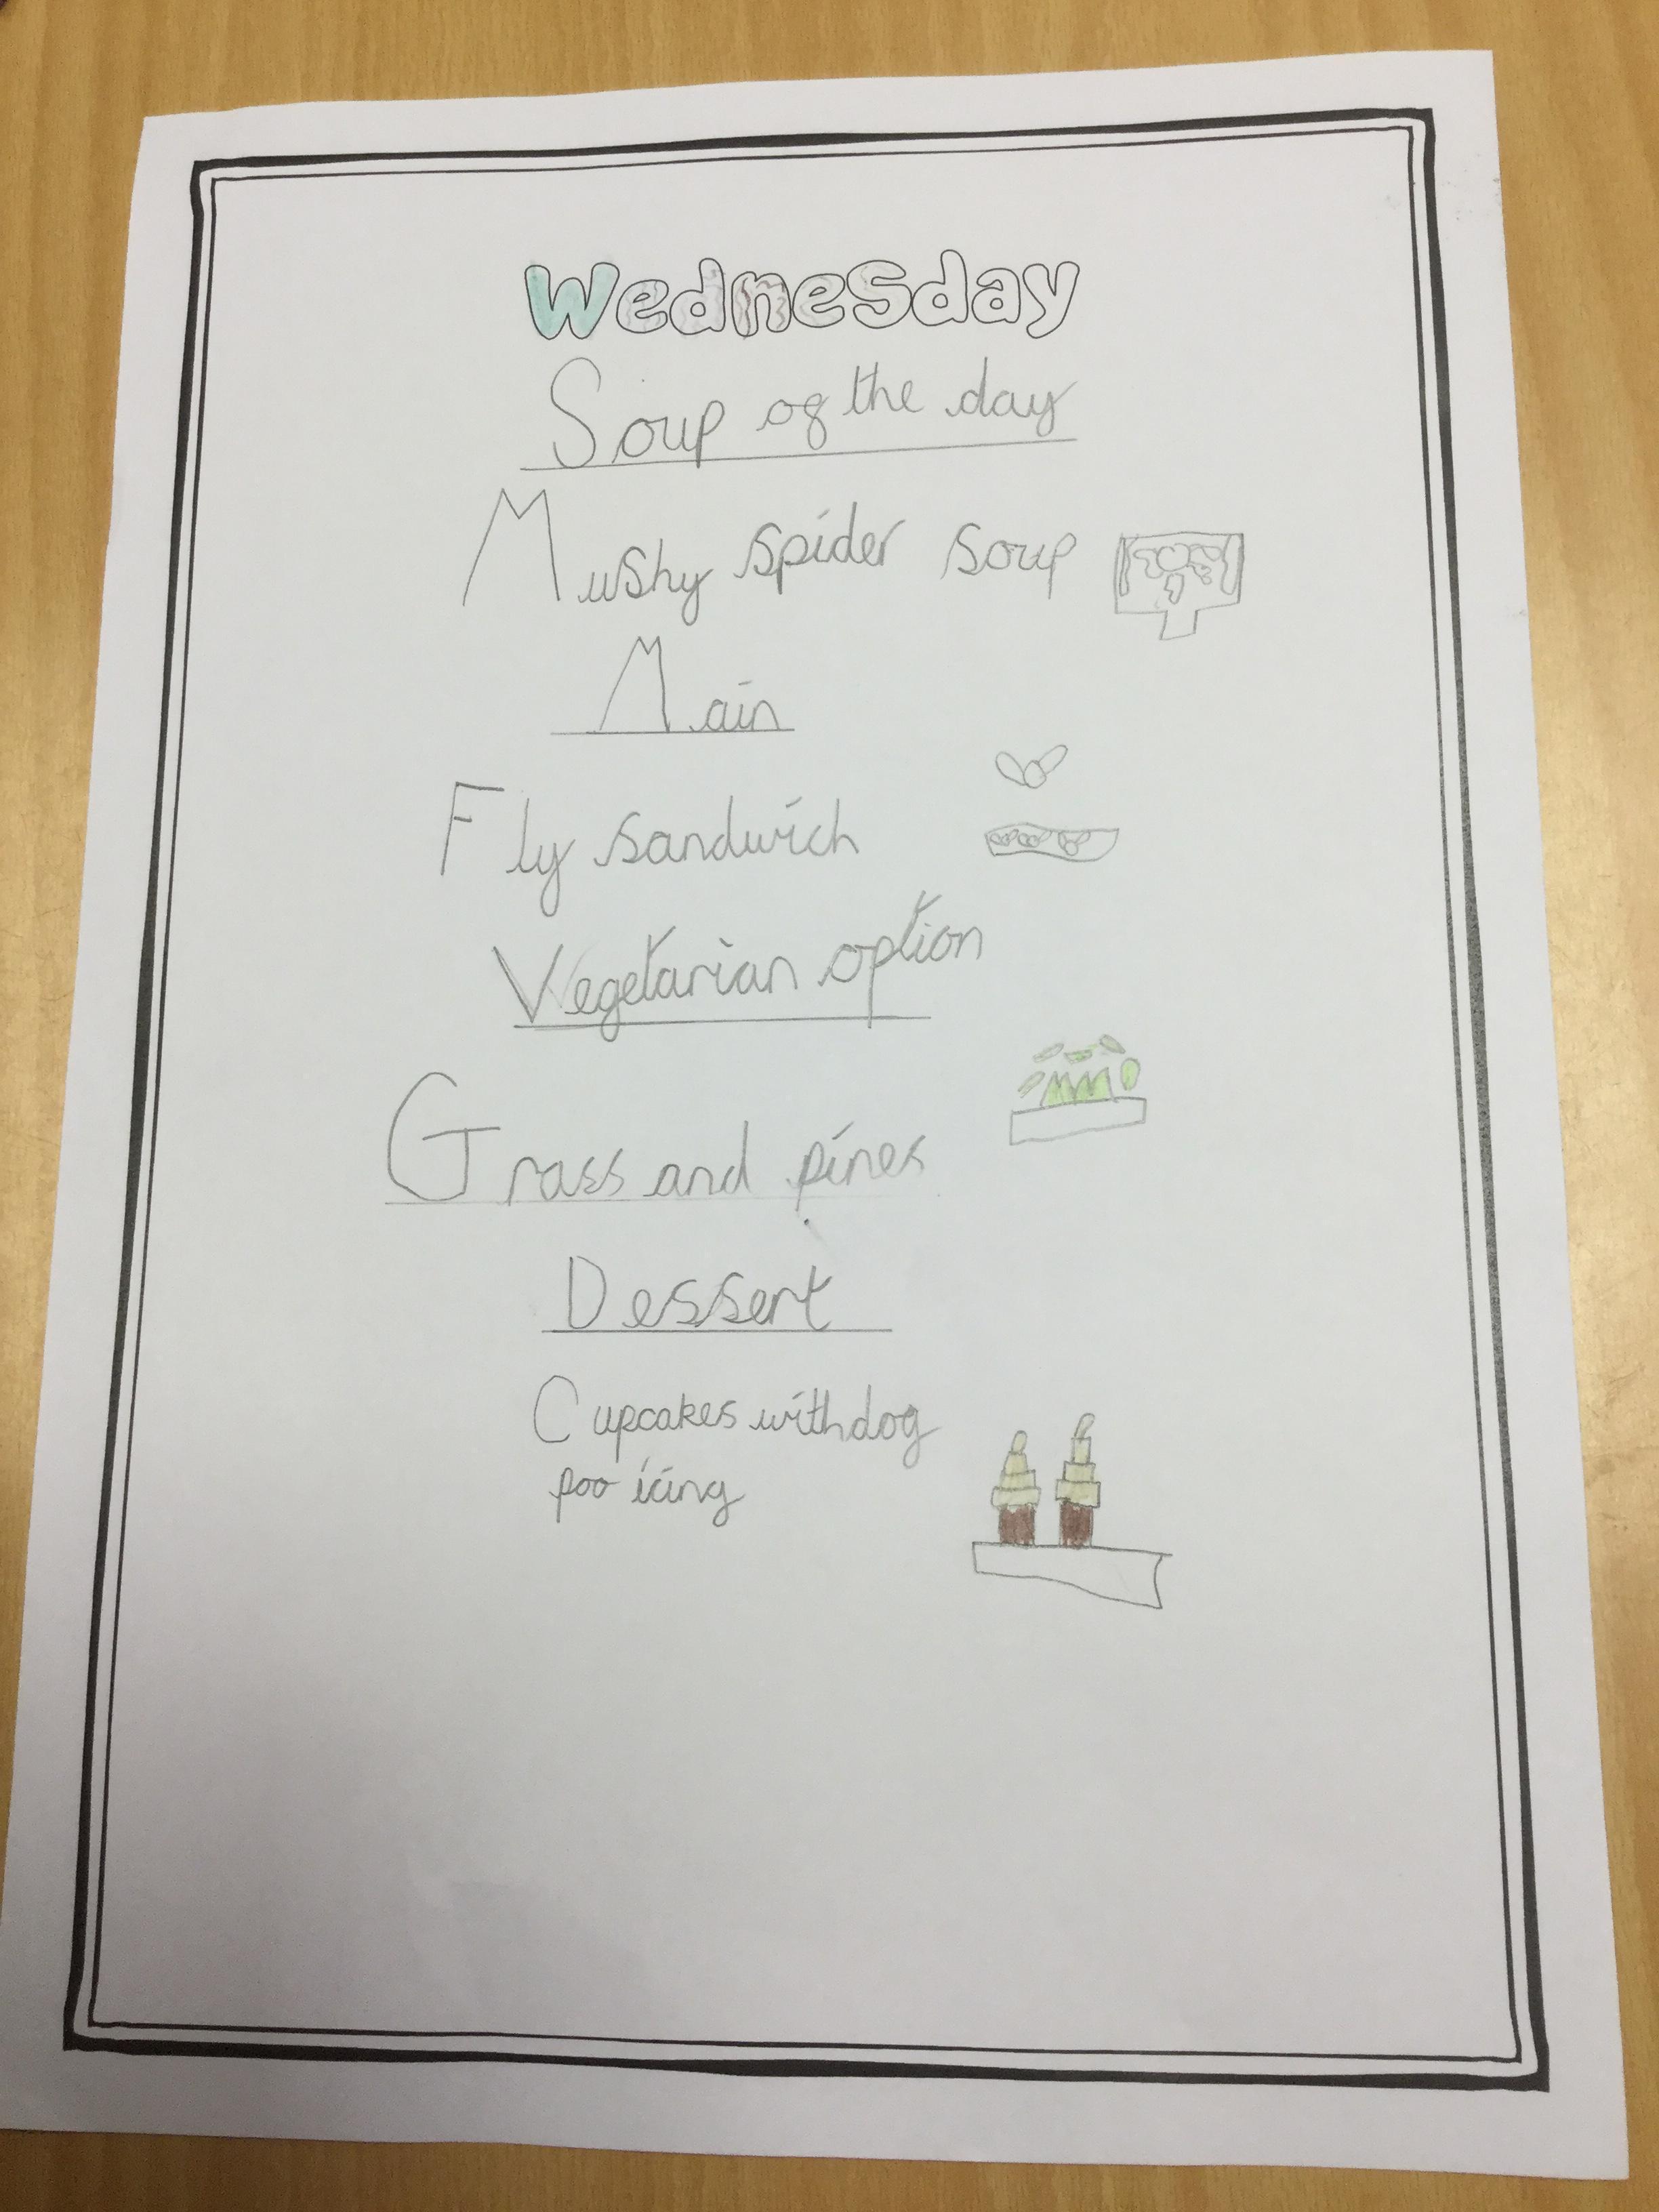 Wednesday
Soup of the day
Mushy spider soup
Main
Fly sandwich
Vegetarian option
Grass and pines
Dessert
Cupcakes with dog
poo icing